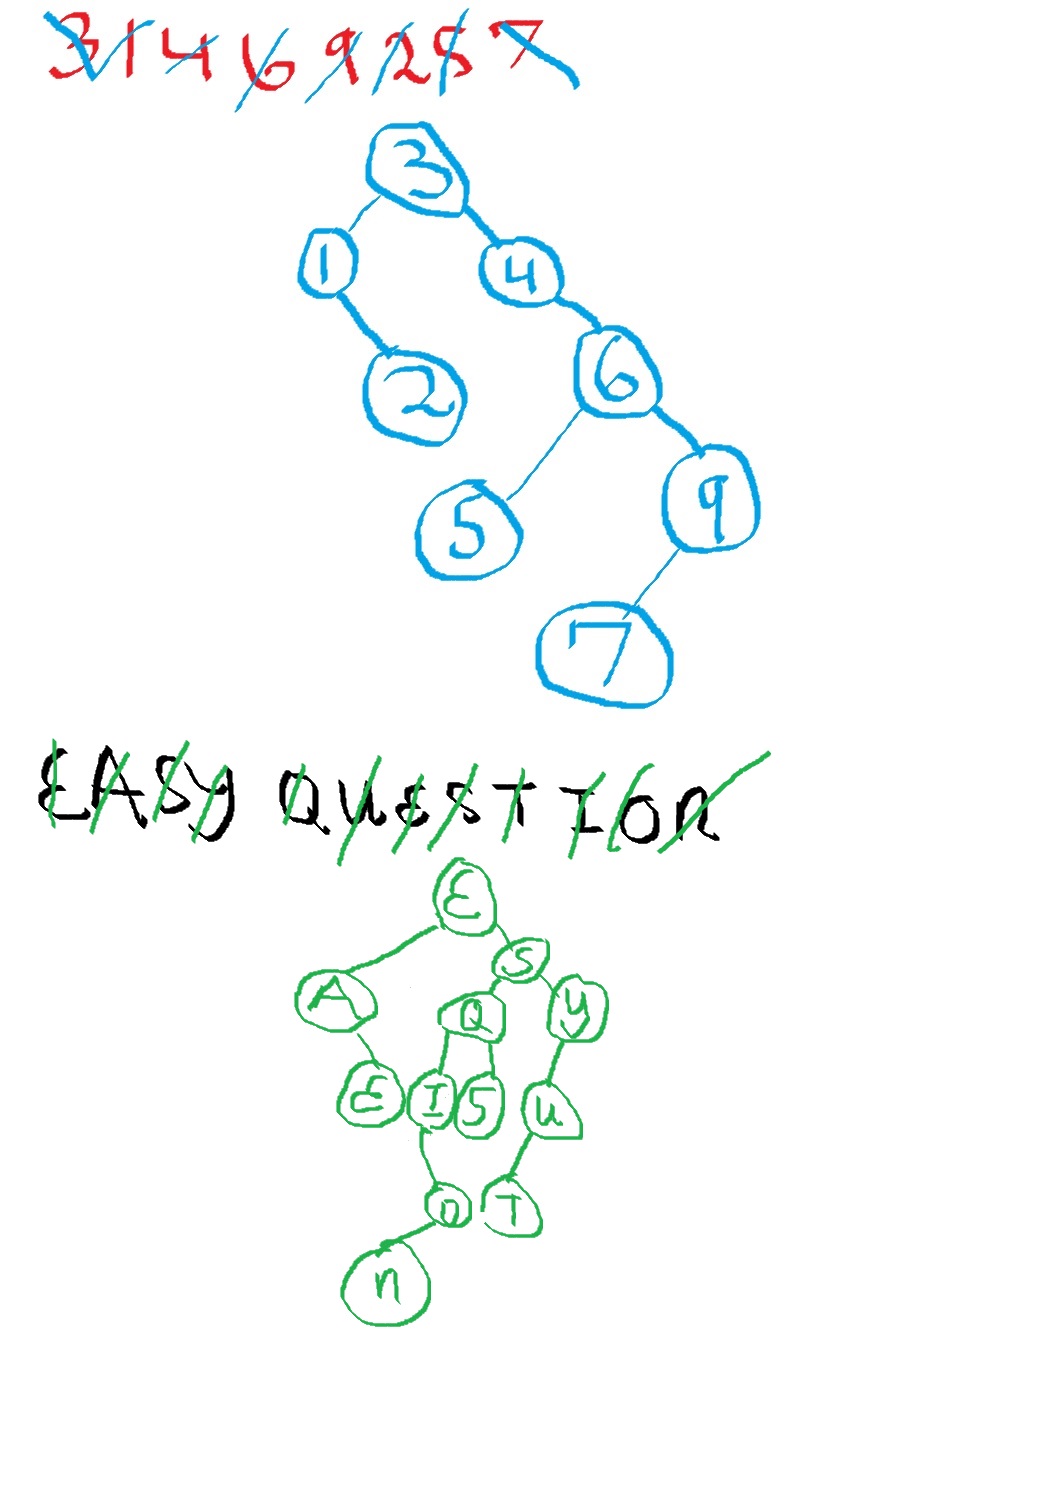 3 1 4 6 9 2 5 7
3
1 4
2 6
5 9
7
EASY QUESTION
E
S
A Q Y
E I S U
O T
n